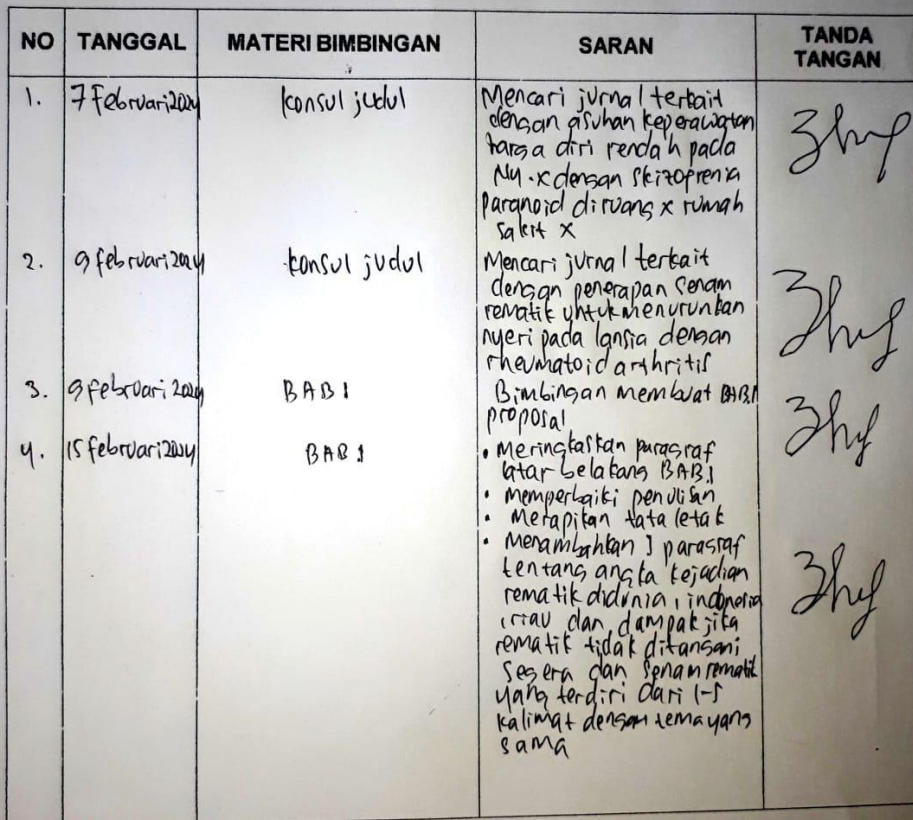 NO TANGGAL MATERI BIMBINGAN SARAN TANDA TANGAN
1. 7 Februari 2024 konsul judul Mencari jurnal terkait
dengan asuhan keperawatan
harga diri rendah pada
Ny.x dengan skizoprenia
paranoid diruang x rumah
sakit x
2. 9 februari 2024 konsul judul Mencari jurnal terkait
dengan penerapan senam
rematik untuk menurunkan
nyeri pada lansia dengan
rheumatoid arthritis
3. 9 februari 2024 BAB 1 Bimbingan membuat BAB.1
proposal
4. 15 februari 2024 BAB 1 • Meringkaskan paragraf
latar belakang BAB.1
• Memperbaiki penulisan
• Merapikan tata letak
• Menambahkan 1 paragraf
tentang angka kejadian
rematik didunia, indonesia
, riau dan dampak jika
rematik tidak ditangani
segera dan senam rematik
yang terdiri dari 1-5
kalimat dengan tema yang
sama